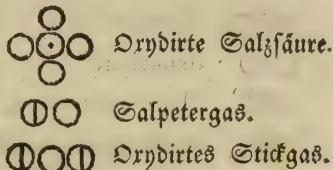 Oxydirte Salzsäure.
Salpetergas.
Oxydirtes Stickgas.